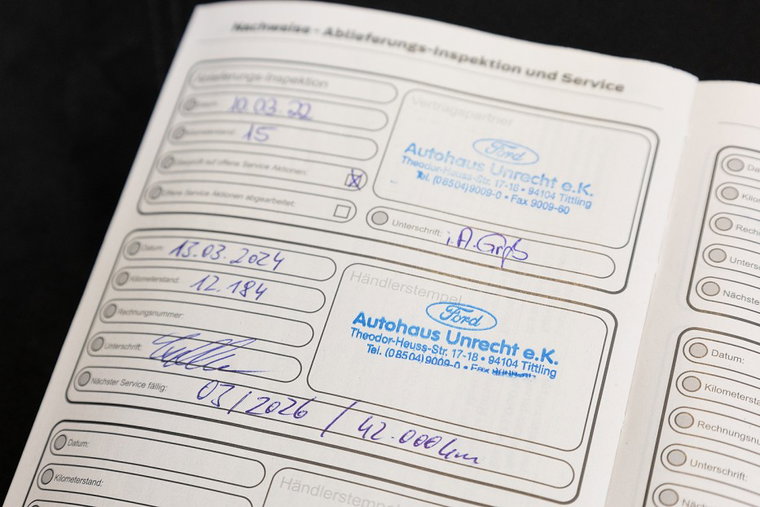 Nachweise - Ablieferungs-Inspektion und Service
Ablieferungs-Inspektion
Datum: 10.03.22
Kilometerstand: 15
Überprüft auf offene Service Aktionen:
Offene Service Aktionen abgearbeitet:
Vertragspartner
Ford
Autohaus Unrecht e.K.
Theodor-Heuss-Str. 17-18 • 94104 Tittling
Tel. (08504) 9009-0 • Fax 9009-60
Unterschrift: i.A.
Datum: 13.03.2024
Kilometerstand: 12.184
Rechnungsnummer:
Unterschrift:
Nächster Service fällig: 03/2026 / 42.000 km
Händlerstempel
Ford
Autohaus Unrecht e.K.
Theodor-Heuss-Str. 17-18 • 94104 Tittling
Tel. (08504) 9009-0 • Fax
Datum:
Kilometerstand:
Händlerstempel
Da
Kilo
Rech
Unters
Nächste
Datum:
Kilometersta
Rechnungsnu
Unterschrift:
Nächs